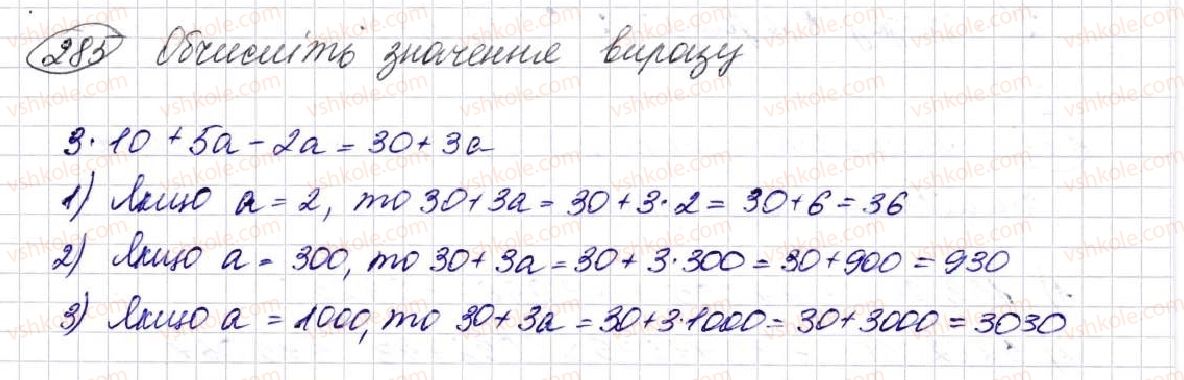 285 Обчисліть значення виразу
3·10 + 5a - 2a = 30 + 3a
1) Якщо a = 2, то 30 + 3a = 30 + 3·2 = 30 + 6 = 36
2) Якщо a = 300, то 30 + 3a = 30 + 3·300 = 30 + 900 = 930
3) Якщо a = 1000, то 30 + 3a = 30 + 3·1000 = 30 + 3000 = 3030